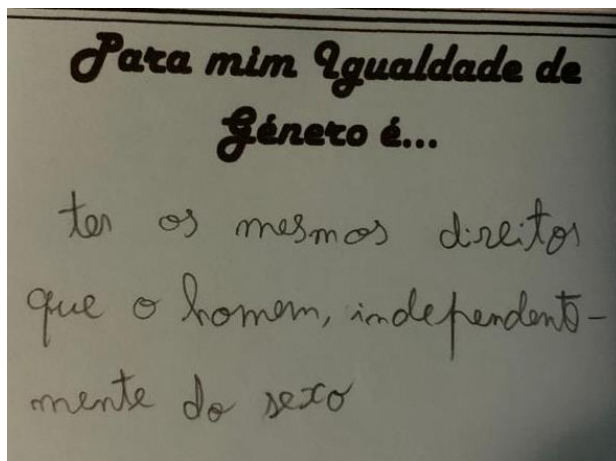 Para mim Igualdade de
Género é...
ter os mesmos direitos
que o homem, independente-
mente do sexo